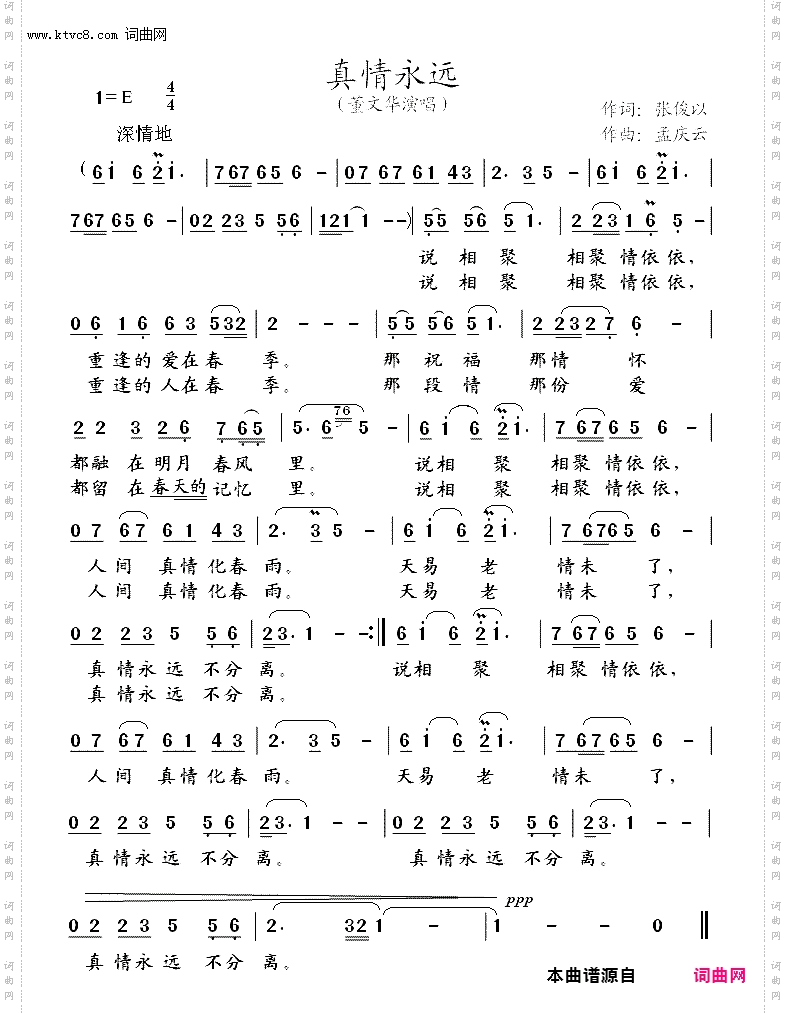 www.ktvc8.com 词曲网
真情永远
（董文华演唱）
1=E 4/4
作词：张俊以
深情地
作曲：孟庆云
(6i 6 2i. | 767 65 6 - | 07 67 61 43 | 2. 3 5 - | 6i 6 2i. |
767 65 6 - | 02 23 5 56 | 121 1 - -) | 55 56 5 1. | 2 231 6 5 - |
说 相 聚 相聚 情依依，
说 相 聚 相聚 情依依，
06 16 63 532 | 2 - - - | 55 56 51. | 2 2327 6 - |
重逢的 爱在春 季。 那 祝 福 那情 怀
重逢的 人在春 季。 那 段 情 那份 爱
22 3 26 765 | 5. 6 76 5 - | 6 i 6 2i. | 7 67 65 6 - |
都融 在 明月 春风 里。 说相 聚 相聚 情依依，
都留 在 春天的 记忆 里。 说相 聚 相聚 情依依，
07 67 61 43 | 2. 3 5 - | 6 i 6 2i. | 7 6765 6 - |
人间 真情化春雨。 天易 老 情未 了，
人间 真情化春雨。 天易 老 情未 了，
02 23 5 56 | 23. 1 - -:|| 6 i 6 2i. | 7 67 65 6 - |
真情永远 不分 离。 说相 聚 相聚 情依依，
真情永远 不分 离。
07 67 61 43 | 2. 3 5 - | 6 i 6 2i. | 7 67 65 6 - |
人间 真情化春雨。 天易 老 情未 了，
02 23 5 56 | 23. 1 - - | 02 23 5 56 | 23. 1 - - |
真情永远 不分 离。 真情永远 不分 离。
ppp
02 23 5 56 | 2. 321 - | 1 - - 0 ||
真情永远 不分 离。
本曲谱源自 词曲网